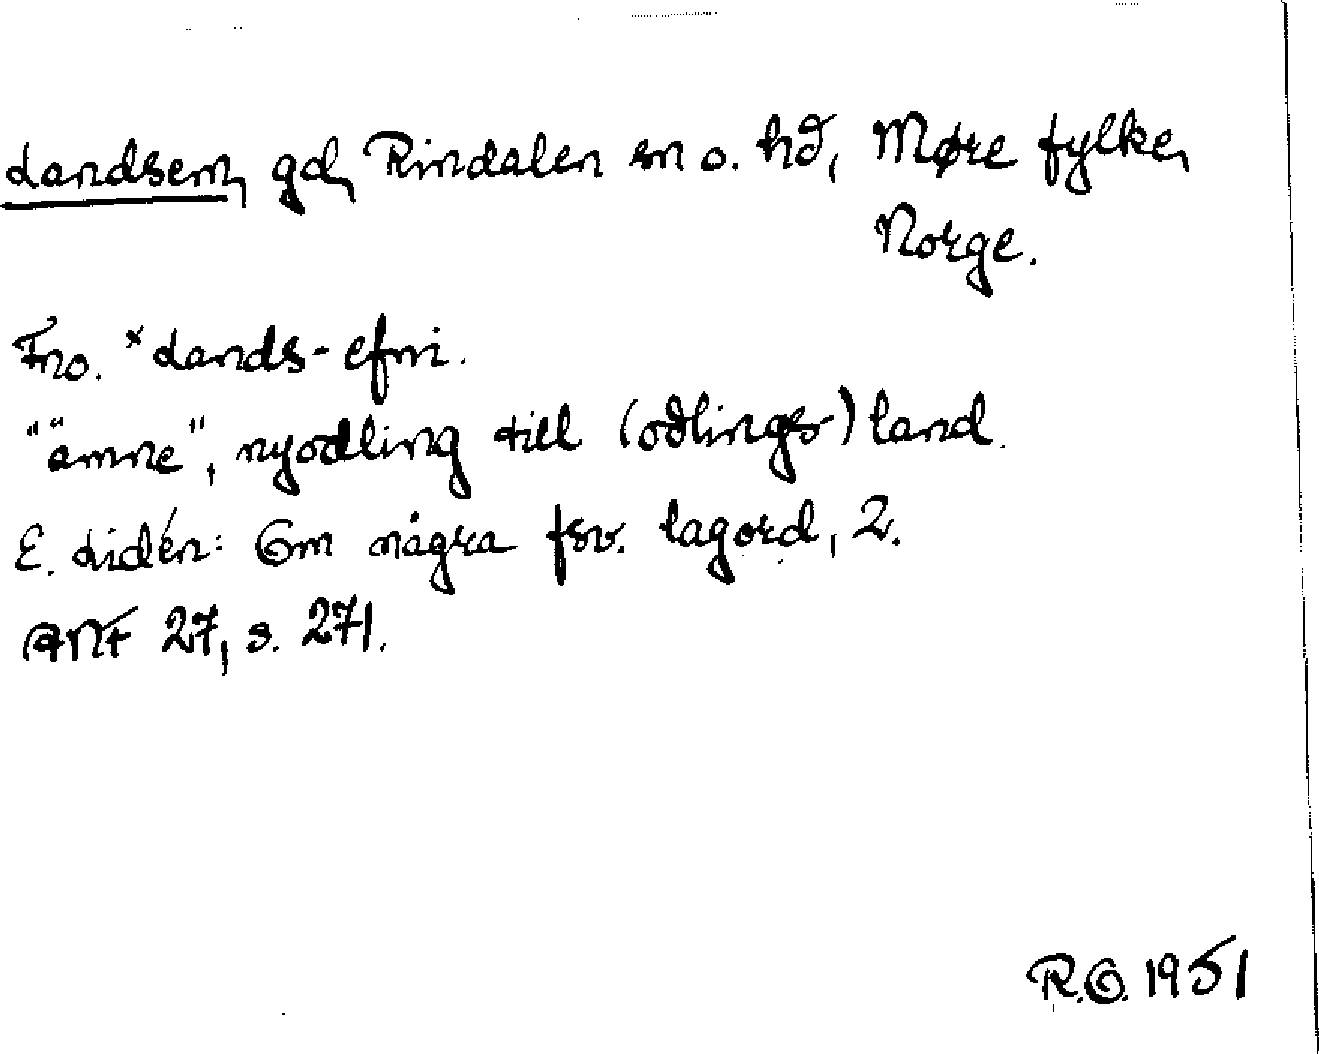 Landsem, gd, Rindalen sn o. hd, Møre fylke,
Norge.
Fno. *Lands-efni.
"ämne", nyodling till (odlings-) land.
E. Lidén: Om några fsv. lagord, 2.
ANF 27, s. 271.
R.O. 1951